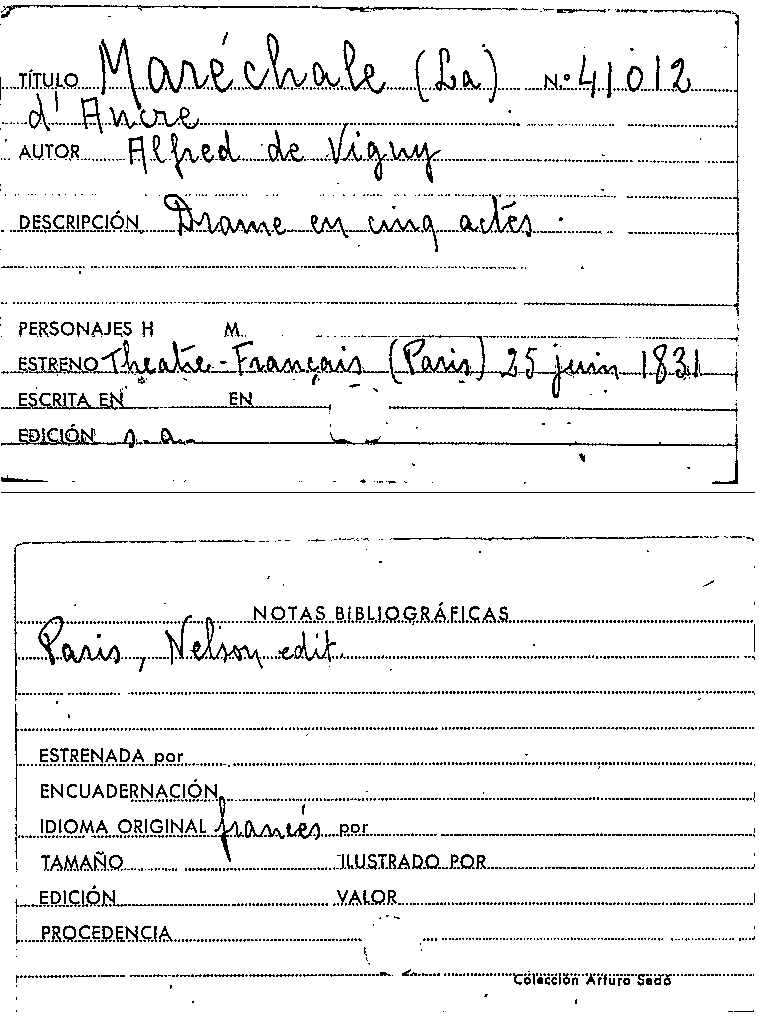 TÍTULO Maréchale (La) N.º 41012
d'Ancre
AUTOR Alfred de Vigny
DESCRIPCIÓN Drame en cinq actes.
PERSONAJES H M.
ESTRENO Theatre-Français (Paris) 25 juin 1831
ESCRITA EN EN
EDICIÓN s.a.
NOTAS BIBLIOGRÁFICAS
Paris, Nelson edit.
ESTRENADA por
ENCUADERNACIÓN
IDIOMA ORIGINAL francés por
TAMAÑO ILUSTRADO POR
EDICIÓN VALOR
PROCEDENCIA
Colección Arturo Sedó